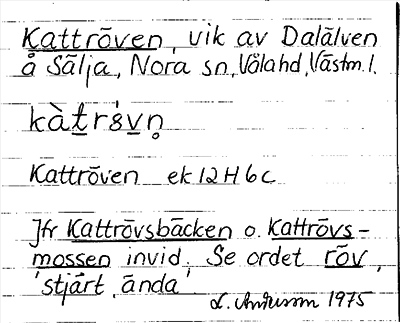 Kattröven, vik av Dalälven
å Sälja, Nora sn, Våla hd, Västm. l.
kàt̠rs̍v̠n̥
Kattröven ek 12 H 6 c
Jfr Kattrövsbäcken o. Kattrövs-
mossen invid. Se ordet röv,
'stjärt, ända'
1975